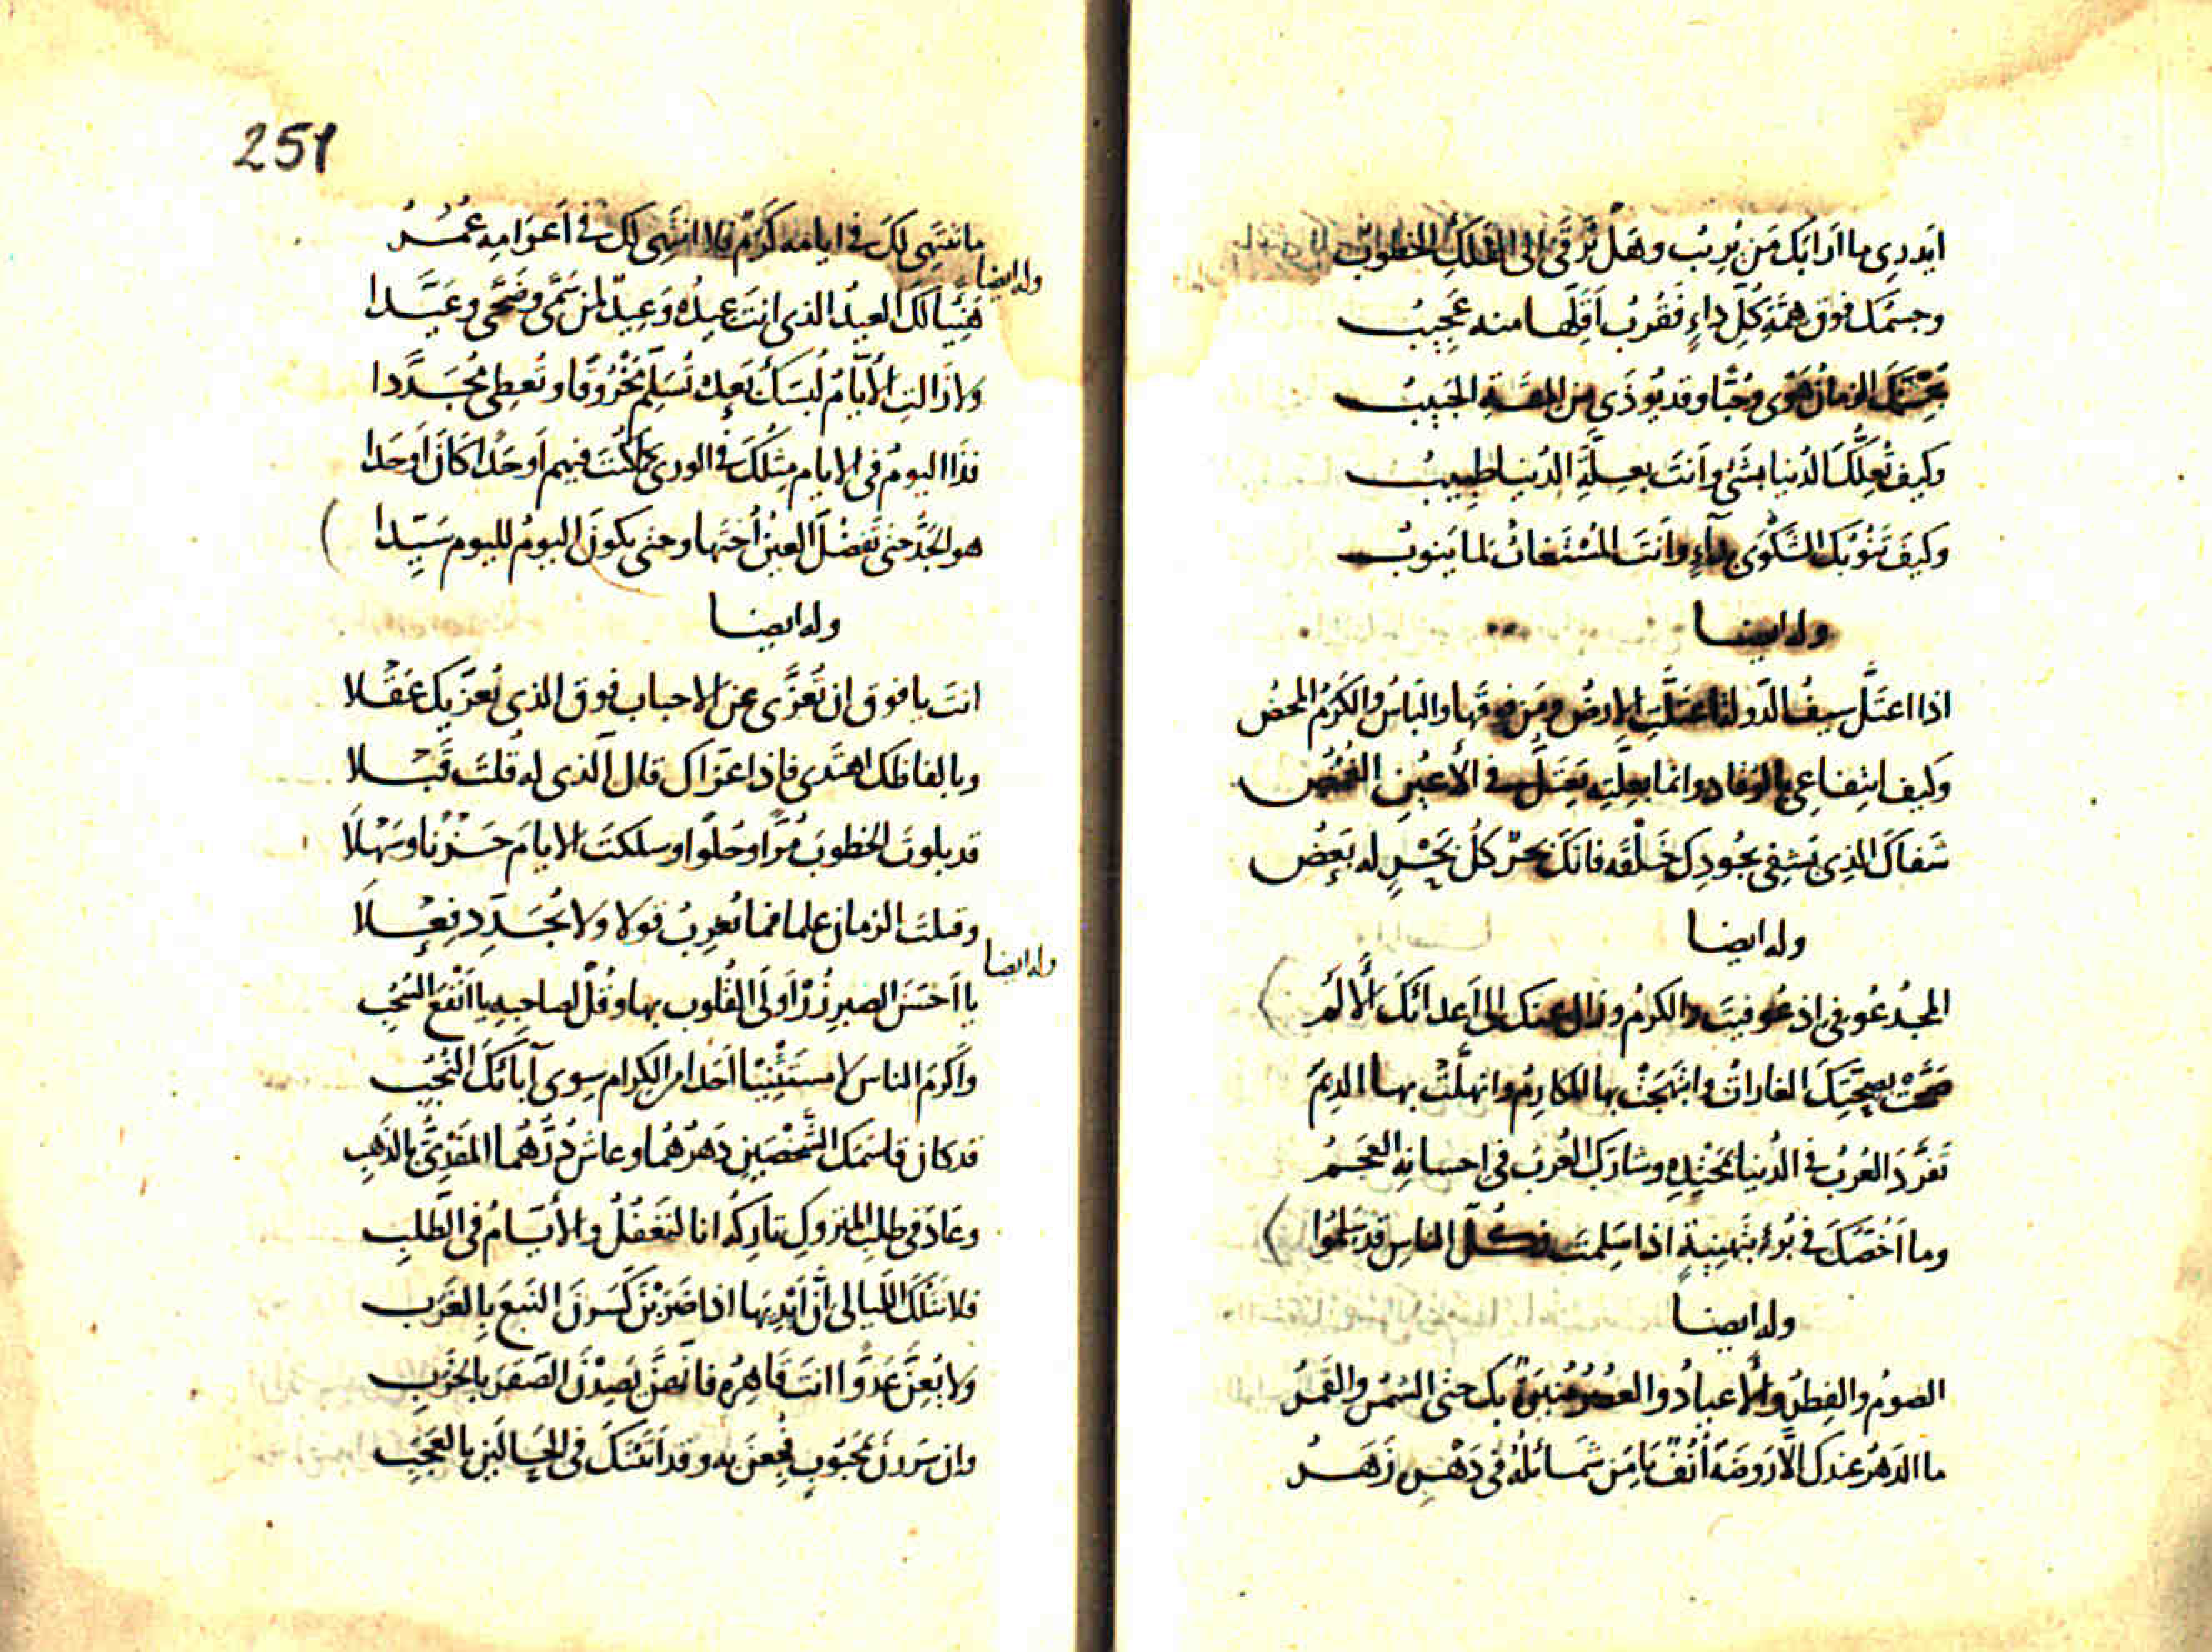 ايَدرِى ما ارَابَك مَن يُريب وهَلْ تَرقَى الى الفلكِ الخطوبُ
وجسمُك فوقَ هِمَّةِ كُلِّ داءٍ فَقُربُ اَقَلِّها منه عَجيبُ
يُجَمِّشُكَ الزمانُ هَوًى وحُبًّا وقد يُوذَى من المِقَةِ الحَبيبُ
وكيف تُعِلُّكَ الدُنيا بشَىءٍ وانتَ بعِلَّةِ الدُنيا طبيبُ
وكيفَ تَنُوبُكَ الشَكْوَى بِداءٍ وانَتَ المُسْتَغاثُ لما يَنوبُ
وله ايضا
اذا اعتَلَّ سيفُ الدَولةِ اعتَلَّتِ الارضُ ومَن فوقَها والبَاسُ والكَرَمُ المحضُ
وكيف انتِفاعِى بالرُقادِ وانما بعِلَّتِهِ يَعتَلُّ فى الأعيُنِ الغُمْضُ
شَفاكَ الذِى يَشفِى بجُودِكَ خَلْقَه فانكَ بَحرٌ كلُ بَحْرٍ له بَعْضُ
وله ايضا
المجدُ عُوفِىَ اذ عُوفيتَ والكرَمُ وزال عنك الى اَعدائكَ الأَلَمُ
صَحَّتْ بصِحَّتِكَ الغاراتُ وابتَهَجَتْ بها المكارِمُ وانهلَّتْ بها الدِيَمُ
تَفرَّدَ العُرْبُ فى الدُنيا بمَحْتِدِهِ وشارَكَ العُربَ فى احسانِهِ العَجَمُ
وما اَخُصُّكَ فى بُرءٍ بتَهنِيَةٍ اذا سَلِمتَ فكُلُّ الناسِ قد سَلِمُوا
وله ايضا
الصومُ والفِطرُ والاعيادُ والعصرُ منيرةٌ بك حتى الشمسُ والقَمَرُ
ما الدَهرُ عندك الاَّ رَوضَةٌ اُنُفٌ يا مَن شَمائلُهُ فى دَهْرِهِ زَهَرُ
251
ما ينتهى لكَ فى ايامه كَرَمٌ فلا انتَهى لك فى اَعوامِهِ عُمُرُ
وله ايضا
هَنِيًا لكَ العيدُ الذى انتَ عيدُه وعيدٌ لمن سَمَّى وضَحَّى وعَيَّدا
ولا زَالتِ الأيَّامُ لُبسَكَ بَعدَه تُسَلِّمُ مَخْرُوقًا وتُعطِى مُجَدَّدا
فذَا اليومُ فى الايام مِثلُكَ فى الورى كما كُنتَ فيهم اَوحَدًا كانَ اَوحَدا
هو الجَدُّ حتى تَفضُلَ العينُ اُختَها وحتى يكونَ اليومُ لليومِ سَيّدا
وله ايضا
انتَ يا فوقَ ان تُعَزَّى عن الاحباب فوق الذى يُعَزّيك عَقْلا
وبالفاظك اهتدى فاذا عَزّاك قال الذى له قُلتَ قَبْلا
قد بلوتَ الخطوبَ مُرًّا وحُلوًا وسلكتَ الايامَ حَزْنًا وسَهْلاَ
وقتلتَ الزمان علما فما يُغرِبُ قولا ولا يُجَدِّد فِعْلاَ
وله ايضا
يا اَحسَنَ الصبرِ زُرْ اَولَى القُلوب بها وقُل لصاحبِهِ يا اَنْفَعَ السُحُبِ
واَكرَمَ الناس لا مستثنِيًا اَحَدا من الكِرام سِوى آبائكَ النُجُبِ
قد كان قاسَمَك الشَّخْصَينِ دَهرُهُما وعاشَ دُرُّهُما المَفْدِىُّ بالذَهَبِ
وعَادَ فى طلبِ المتروكِ تارِكُه انا لنَغفُلُ والأيَّامُ فى الطَلبِ
فلا تَنَلْكَ اللَيالى اِنَّ اَيْدِيَها اذا ضَرَبْنَ كَسَرنَ النَبعَ بالغَرَبِ
ولا يُعِنَّ عَدُوًّا انتَ قاهِرُه فانَهنَّ يَصِدْنَ الصَقرَ بالخَرَبِ
وان سَرَرنَ بمَحبُوبٍ فَجعنَ به وقد اَتَيْنَكَ فى الحالَينِ بالعَجَبِ